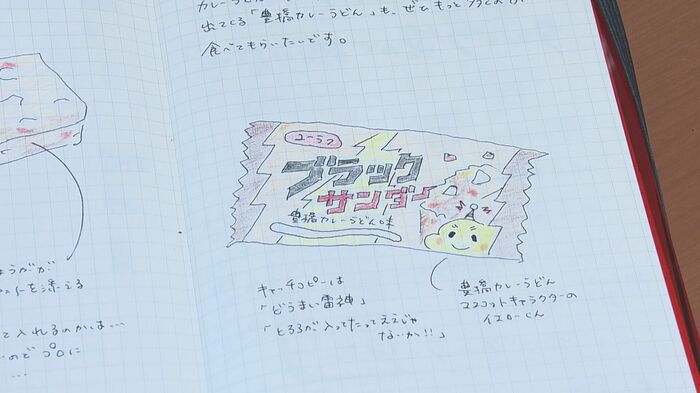 出てくる「豊橋カレーうどん」も、ぜひもっと
食べてもらいたいです。
ユーラク
ブラック
サンダー
豊橋カレーうどん味
キャッチコピーは
「どうまい雷神」
「とろろが入ってたってええじゃ
ないか!!」
豊橋カレーうどん
マスコットキャラクターの
イエローくん
ょうがが
を添える
て入れるのかは…
のでプロに
…